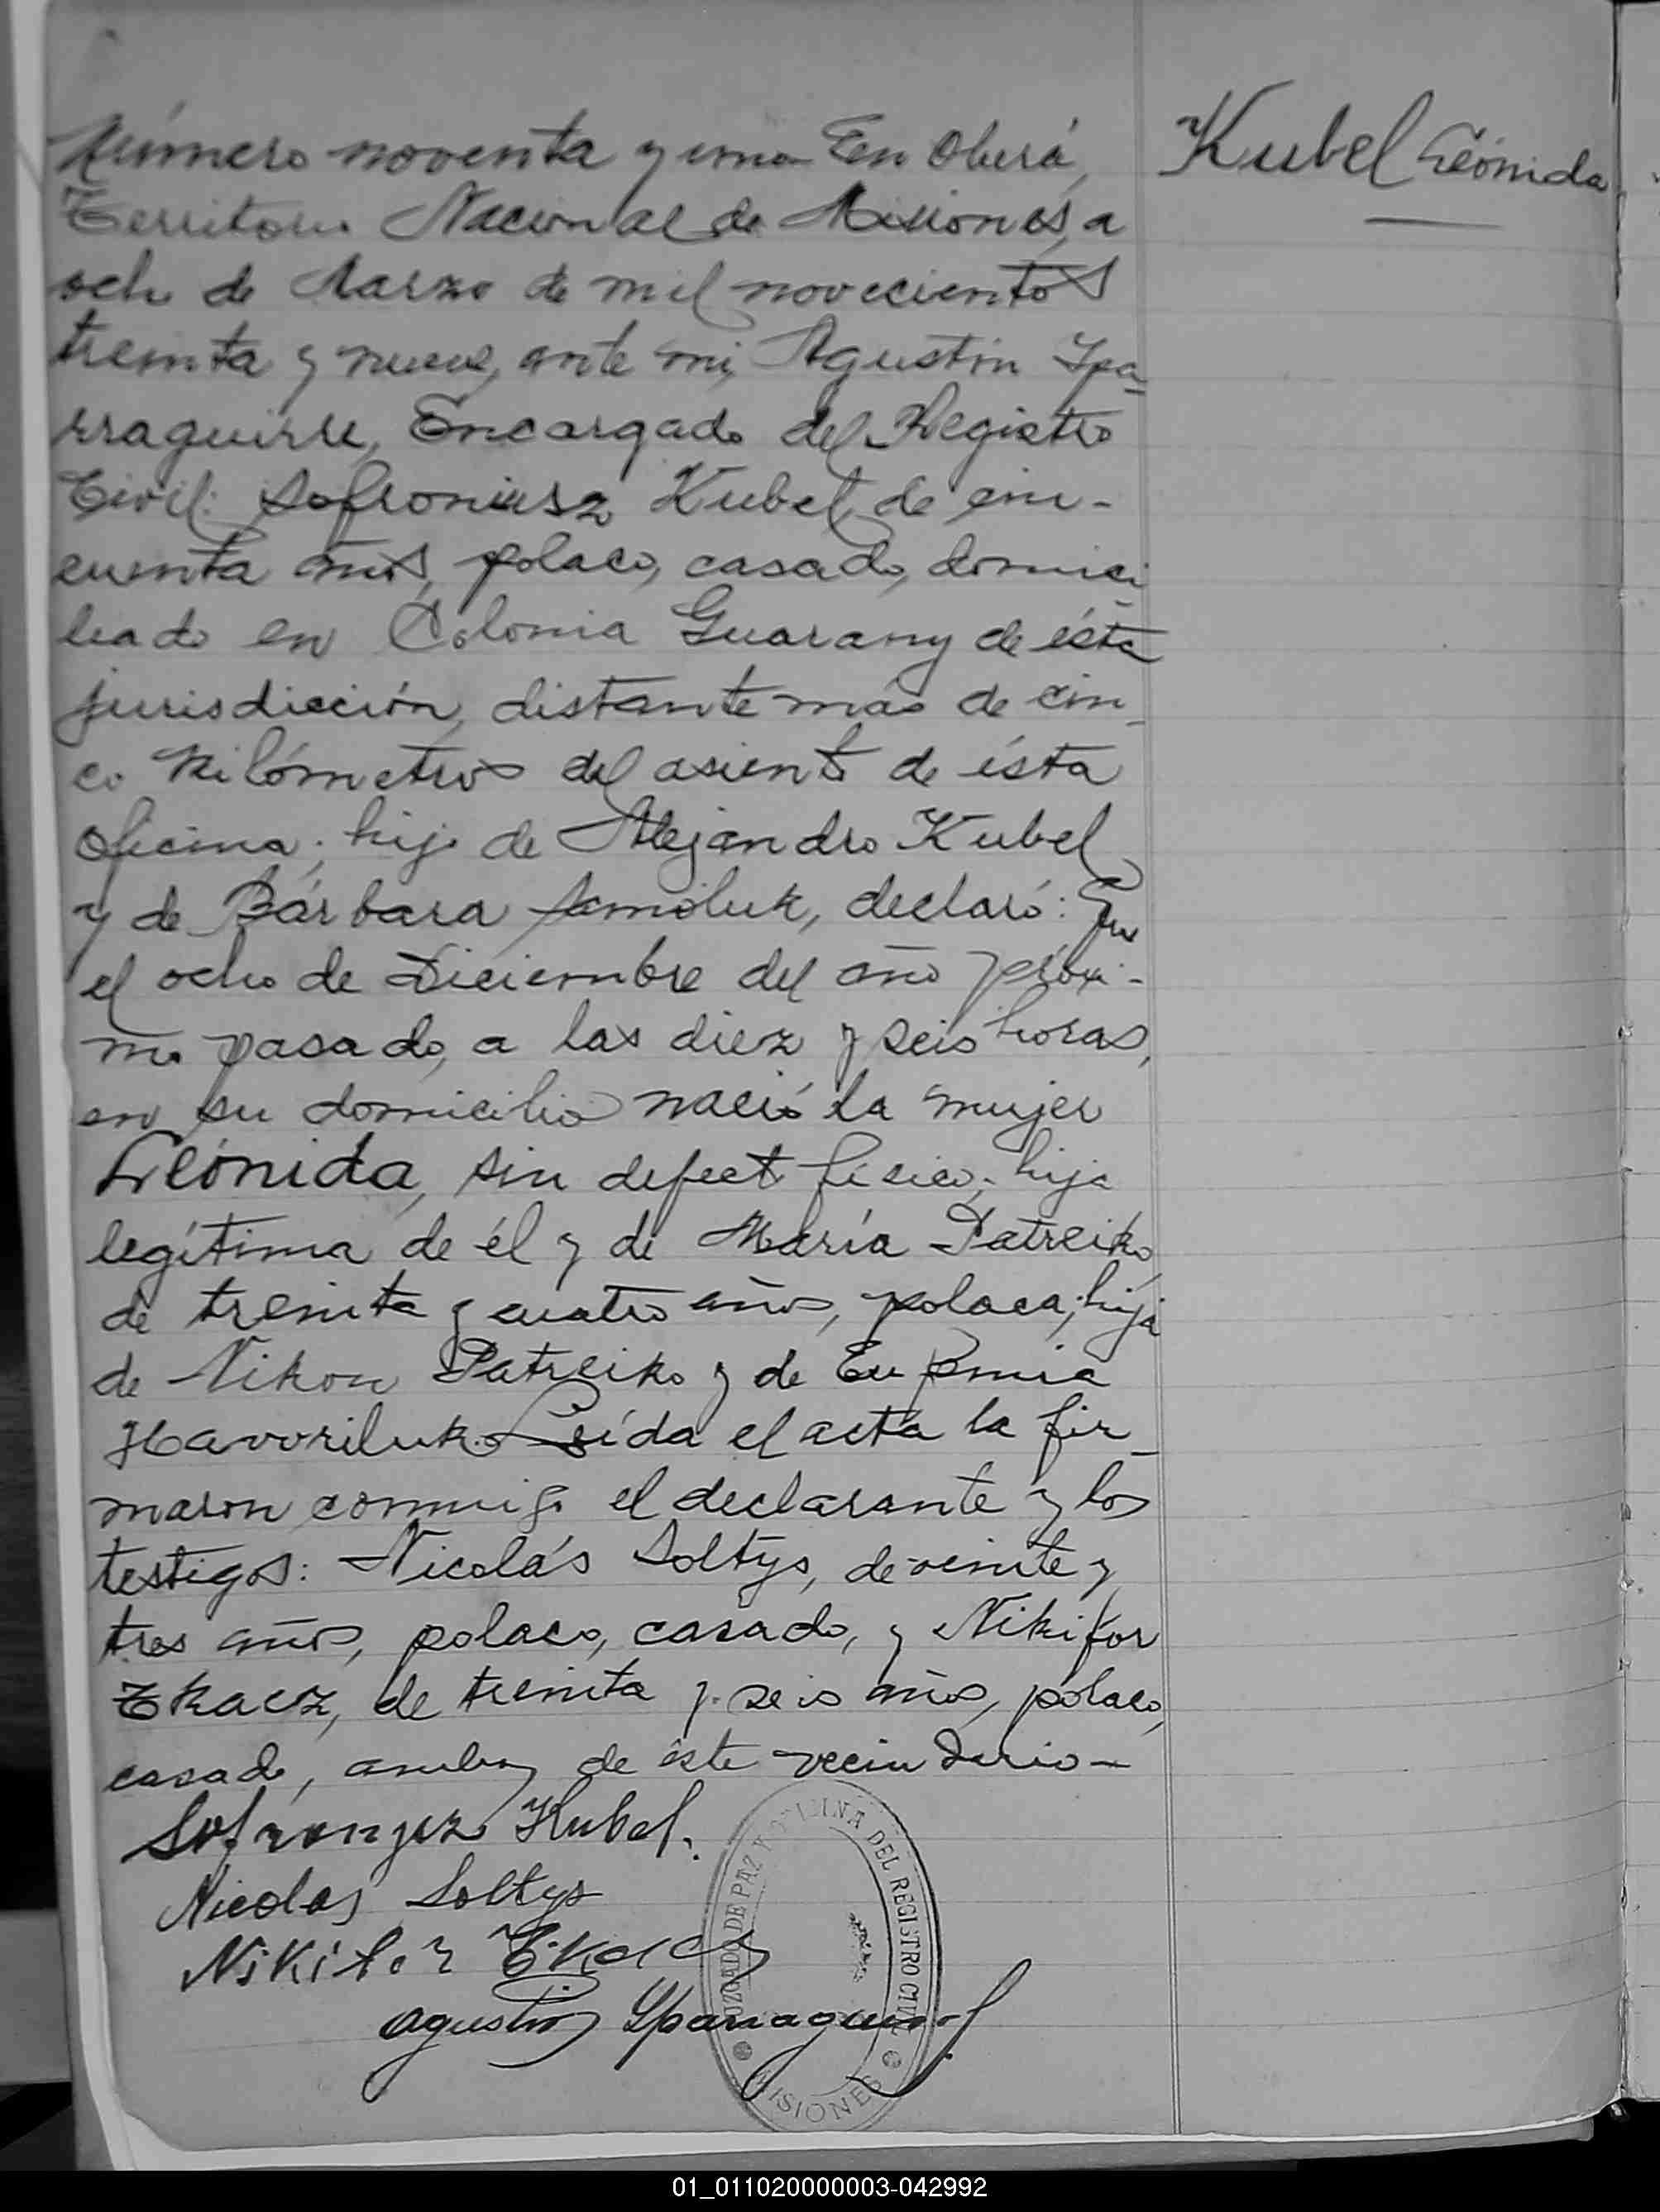 Número noventa y uno En Oberá,
Territorio Nacional de Misiones, a
ocho de Marzo de mil novecientos
treinta y nueve, ante mi, Agustin Ypa-
rraguirre, Encargado del Registro
Civil: Sofroniusz Kubel, de cin-
cuenta años, polaco, casado, domici-
liado en Colonia Guarany de ésta
jurisdicción, distante más de cin-
co Kilómetros del asiento de ésta
oficina; hijo de Alejandro Kubel
y de Bárbara Samoluk, declaró: Que
el ocho de Diciembre del año próxi-
mo pasado, a las diez y seis horas,
en su domicilio nació la mujer
Leónida, sin defecto físico; hija
legítima de él y de María Patreiko,
de treinta y cuatro años, polaca; hija
de Nikon Patreiko y de Eufemia
Havoriluk. Leída el acta la fir-
maron conmigo el declarante y los
testigos: Nicolás Soltys, de veinte y
tres años, polaco, casado, y Nikifor
Tkacz, de treinta y seis años, polaco,
casado, ambos de éste vecindario-
Kubel Leónida
Kubel.
Nicolas Soltys
Nikifor Tkacz
Agustin Yparraguirre
JUZGADO DE PAZ Y OFICINA DEL REGISTRO CIVIL
MISIONES
01_011020000003-042992